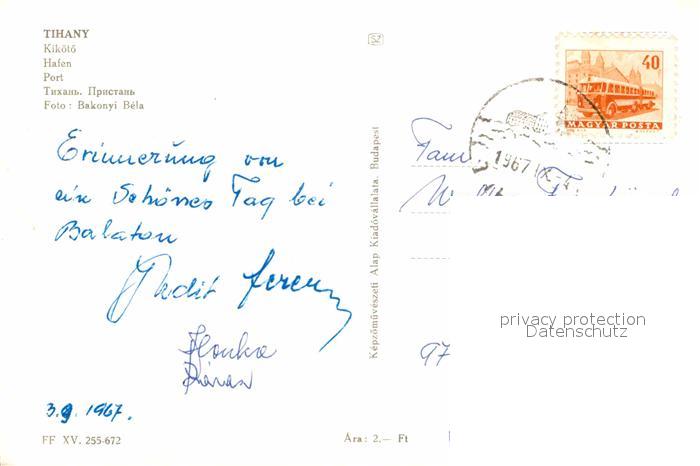 TIHANY
Kikötő
Hafen
Port
Тихань. Пристань
Foto : Bakonyi Béla
SZ
40
MAGYAR POSTA
1967
Erinnerung von
ein Schönes Tag bei
Balaton
Ferenc
Ilonka
3.9. 1967.
FF XV. 255-672
Ára: 2.— Ft
Képzőművészeti Alap Kiadóvállalata, Budapest
Fam
97
privacy protection
Datenschutz